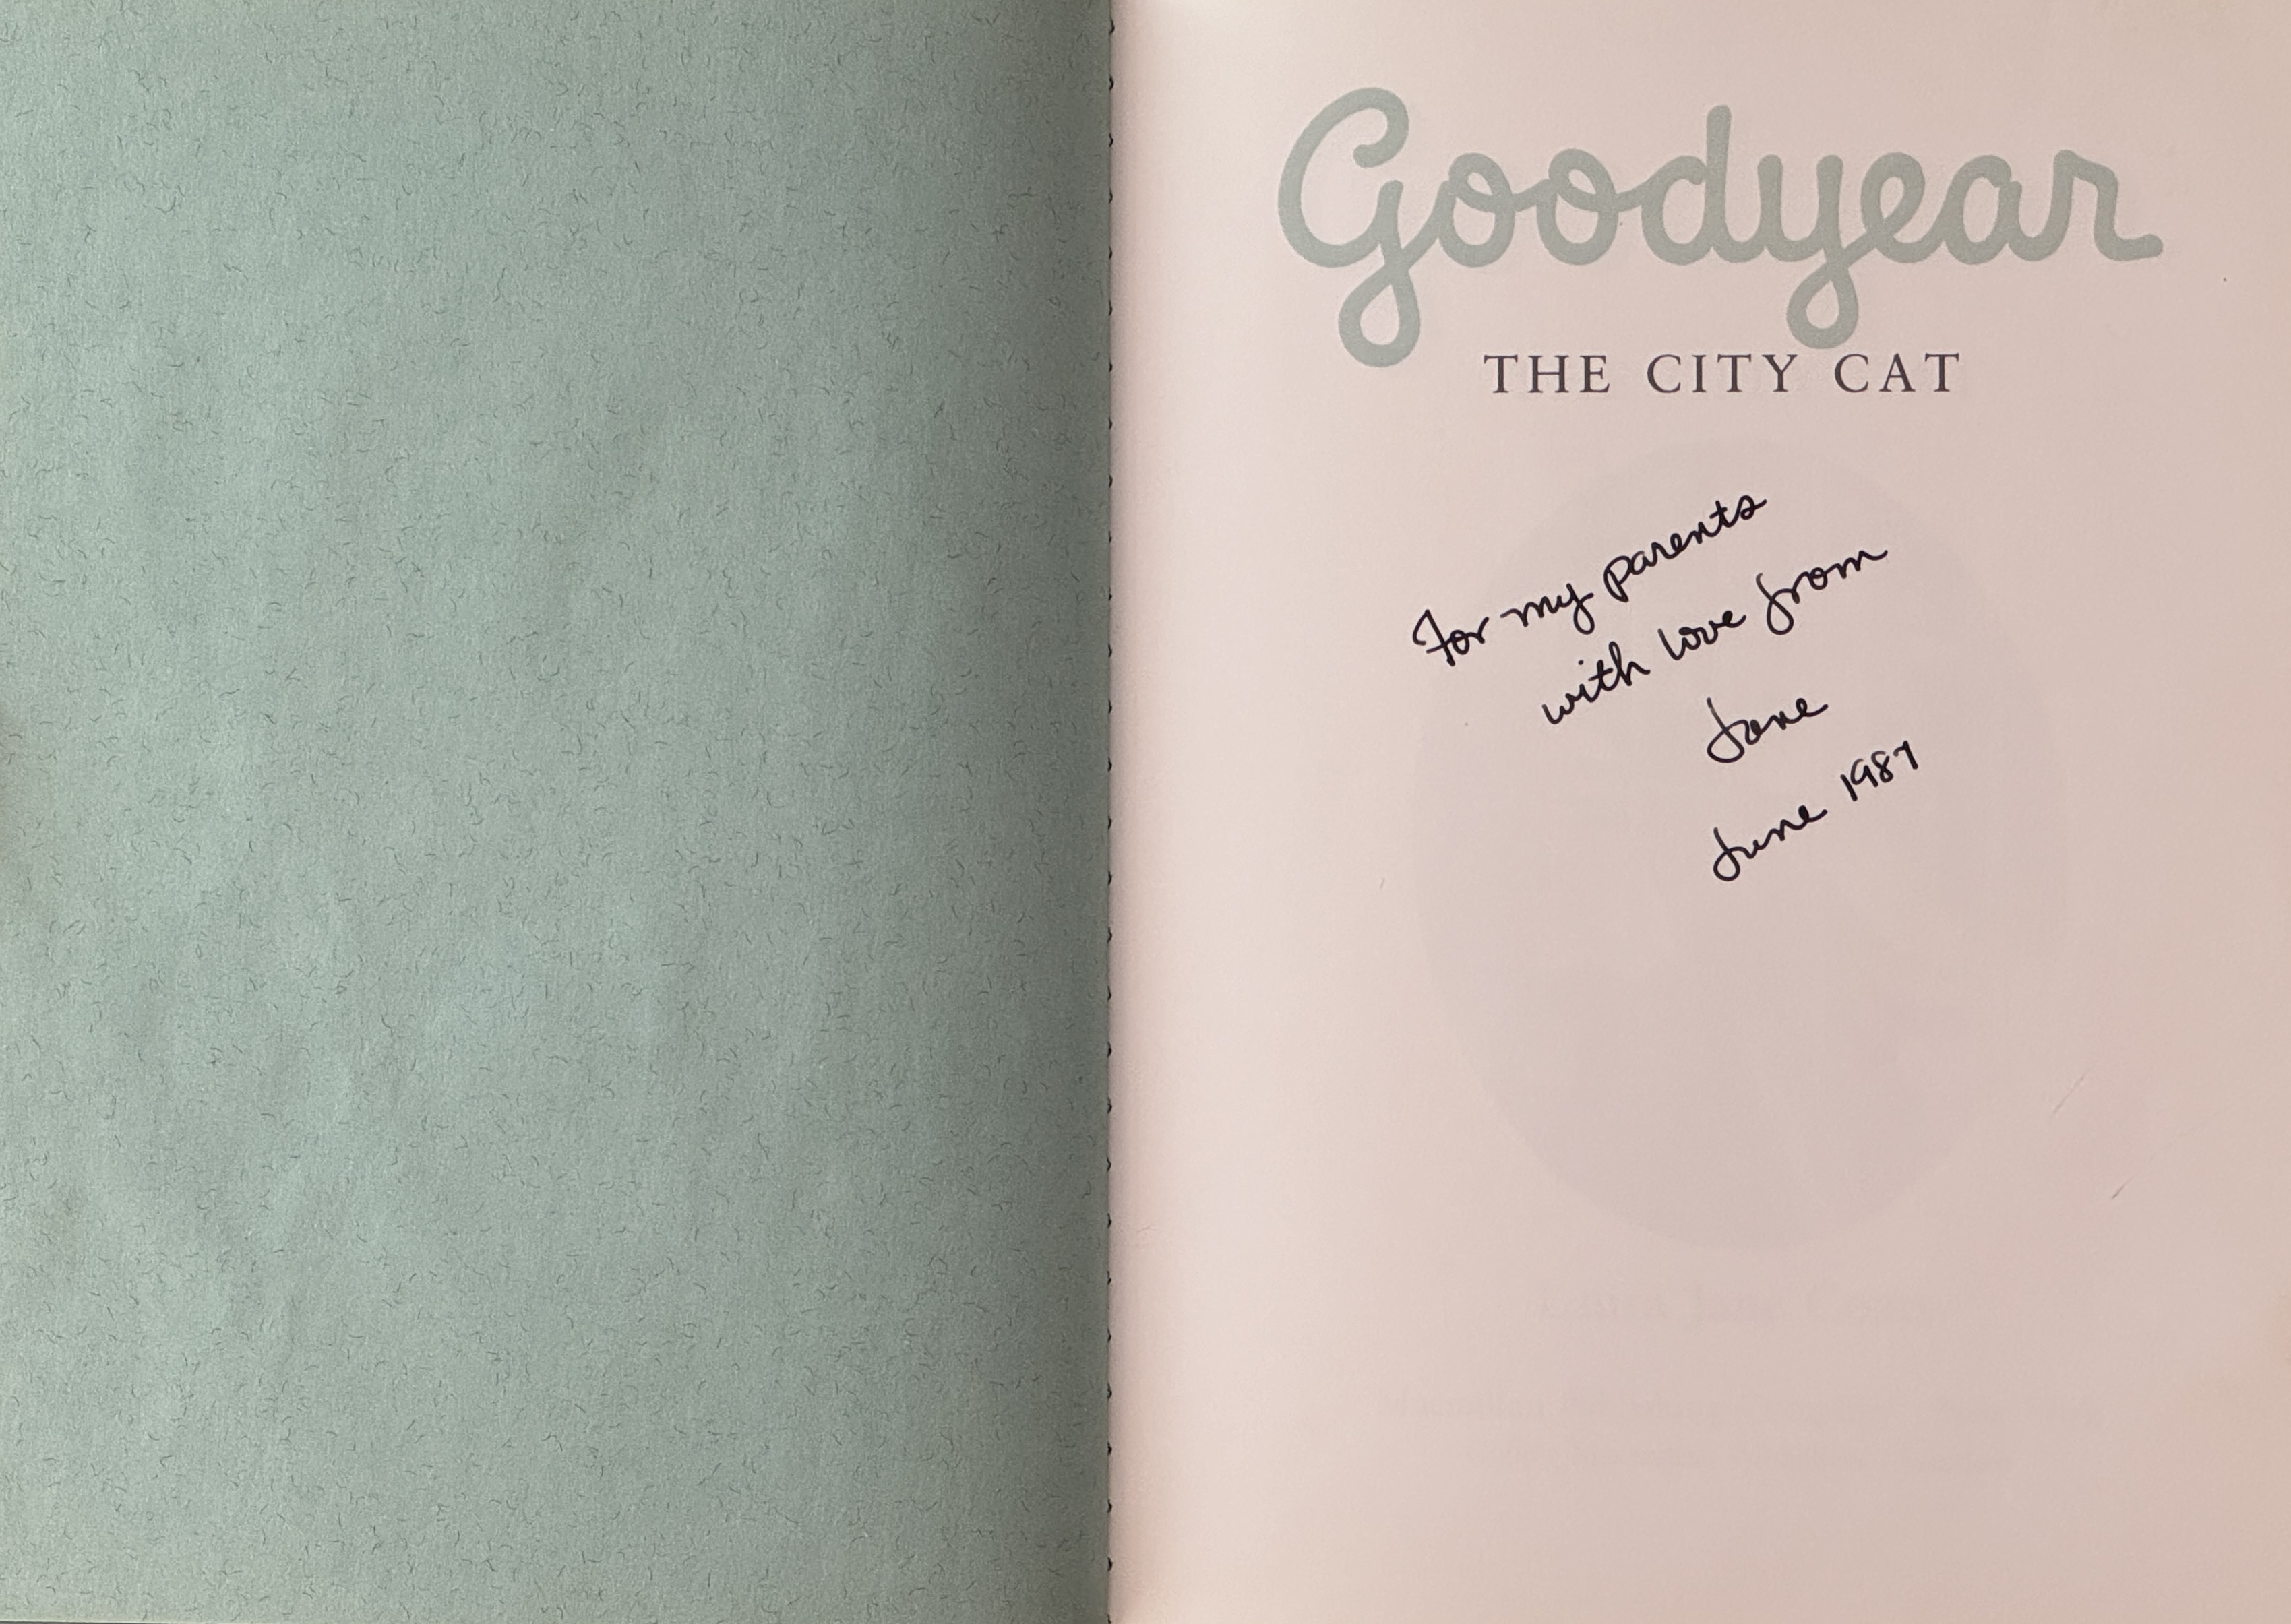 Goodyear
THE CITY CAT
For my parents
with love from
Jane
June 1987